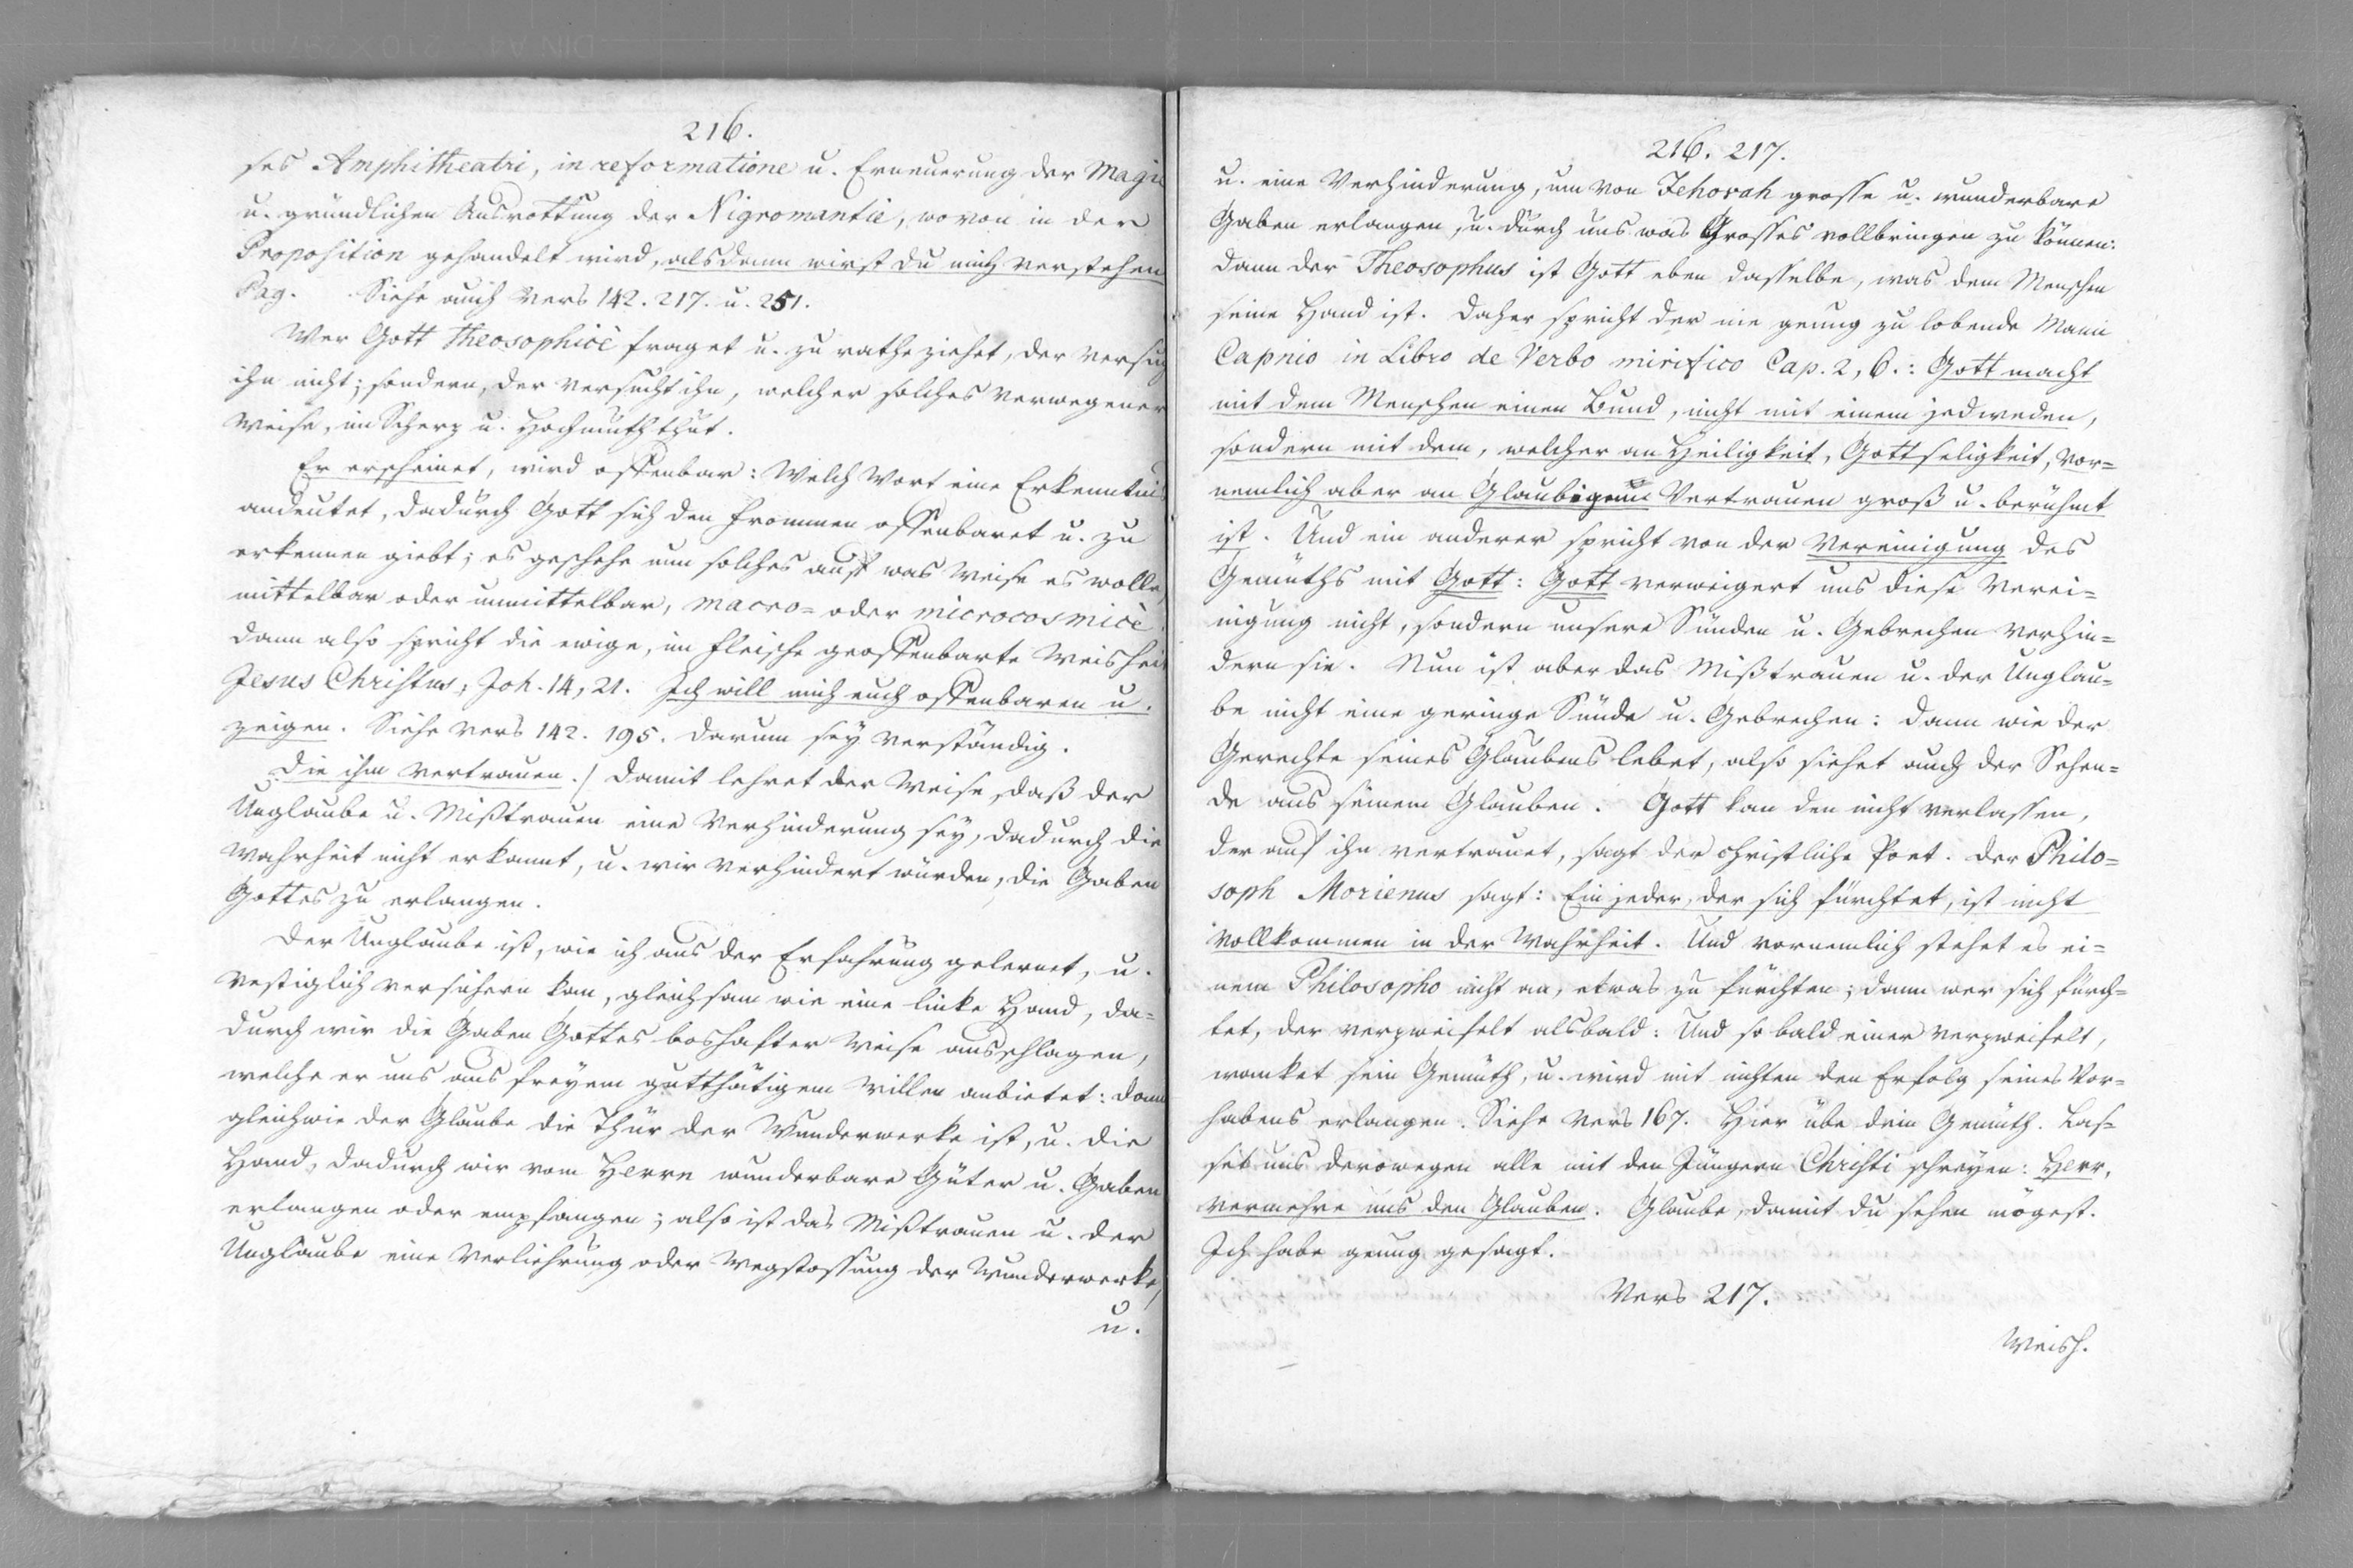 216.
ses Amphitheatri, in reformatione u. Erneuerung der Magie
u. gründlichen Ausrottung der Nigromantie, wovon in der
Proposition gehandelt wird, alsdann wirst du mich verstehen
Pag. Siehe auch Vers 142. 217. u. 251.
Wer Gott theosophicè fraget u. zu rathe ziehet, der versuch
ihn nicht; sondern, der versucht ihn, welcher solches verwegener
Weise, im Scherz u. Hochmuth thut.
Er erscheinet, wird offenbar: Welch Wort eine Erkenntnis
andeutet, dadurch Gott sich den Frommen offenbaret u. zu
erkennen giebt; es geschehe nun solches auf was Weise es wolle,
mittelbar oder unmittelbar, macro- oder microcosmicè.
dann also spricht die ewige, im Fleische geoffenbarte Weisheit
Jesus Christus, Joh. 14, 21. Ich will mich euch offenbaren u.
zeigen. Siehe Vers 142. 195. Darum sey verständig.
Die ihm vertrauen./ Damit lehret der Weise, daß der
Unglaube u. Mißtrauen eine Verhinderung sey, dadurch die
Wahrheit nicht erkannt, u. wir verhindert würden, die Gaben
Gottes zu erlangen.
Der Unglaube ist, wie ich aus der Erfahrung gelernet, u.
vestiglich versichern kan, gleichsam wie eine linke Hand, da-
durch wir die Gaben Gottes boshafter Weise ausschlagen,
welche er uns aus freyem gutthätigem Willen anbietet: dann
gleichwie der Glaube die Thür der Wunderwerke ist, u. die
Hand, dadurch wir vom Herrn wunderbare Güter u. Gaben
erlangen oder empfangen; also ist das Mißtrauen u. der
Unglaube eine Verliehrung oder Wegstossung der Wunderwerke,
u.
216. 217.
u. eine Verhinderung, um von Jehovah grosse u. wunderbare
Gaben erlangen, u. durch uns was Grosses vollbringen zu können:
Dann der Theosophus ist Gott eben dasselbe, was dem Menschen
seine Hand ist. Daher spricht der nie genug zu lobende Mann
Capnio in Libro de Verbo mirifico Cap. 2, 6.: Gott macht
mit dem Menschen einen Bund, nicht mit einem jedweden,
sondern mit dem, welcher an Heiligkeit, Gottseligkeit, vor-
nemlich aber an Glaubigem Vertrauen groß u. berühmt
ist. Und ein anderer spricht von der Vereinigung des
Gemüths mit Gott: Gott verweigert uns diese Verei-
nigung nicht, sondern unsere Sünden u. Gebrechen verhin-
dern sie. Nun ist aber das Mißtrauen u. der Unglau-
be nicht eine geringe Sünde u. Gebrechen: Dann wie der
Gerechte seines Glaubens lebet, also siehet auch der Sehen-
de aus seinem Glauben. Gott kan den nicht verlassen,
der auf ihn vertrauet, sagt der christliche Poet. Der Philo-
soph Morienus sagt: Ein jeder, der sich fürchtet, ist nicht
vollkommen in der Wahrheit. Und vornemlich stehet es ei-
nem Philosopho nicht an, etwas zu fürchten; dann wer sich fürch-
tet, der verzweifelt alsbald: Und so bald einer verzweifelt,
wanket sein Gemüth, u. wird mit nichten den Erfolg seines Vor-
habens erlangen. Siehe Vers 167. Hier übe dein Gemüth. Las-
set uns derowegen alle mit den Jüngern Christi schreyen: Herr,
vermehre uns den Glauben. Glaube, damit du sehen mögest.
Ich habe genug gesagt.
Vers 217.
Weish.